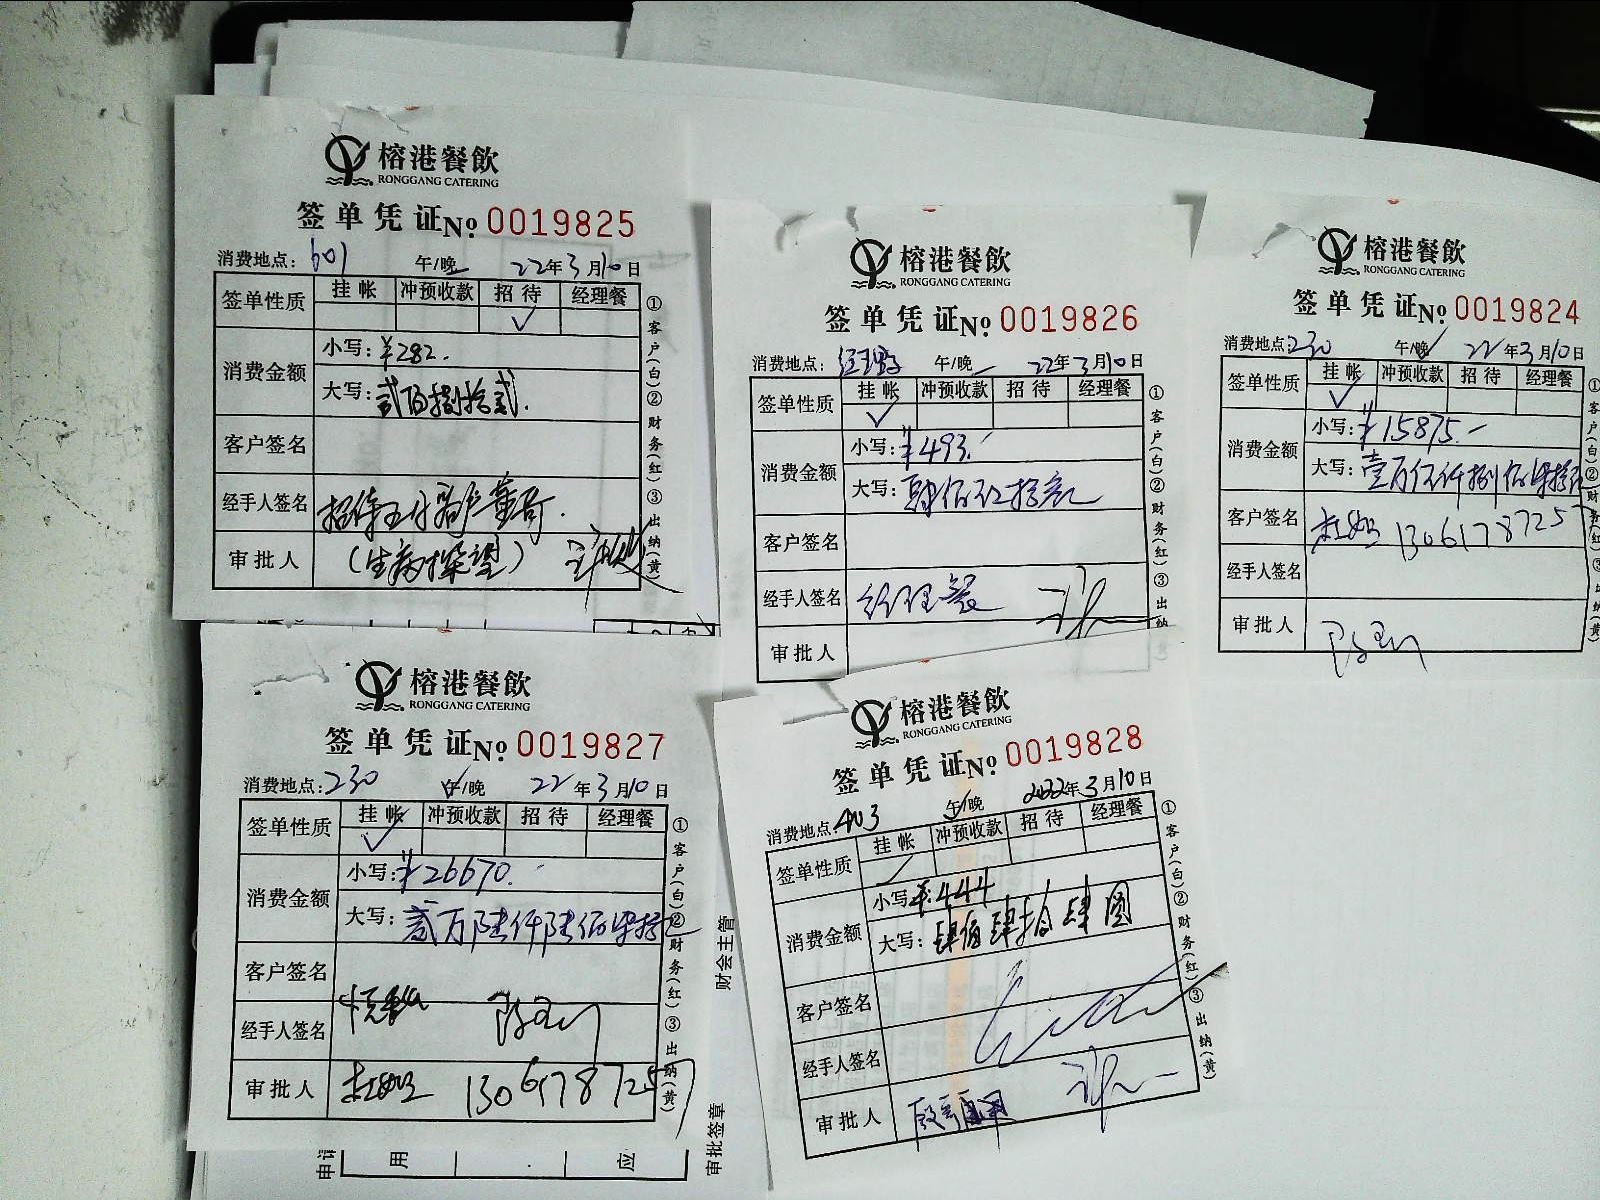 榕港餐飲
RONGGANG CATERING
签单凭证No. 0019825
消费地点: 601 午/晚 22年3月10日
签单性质 挂帐 冲预收款 招待 经理餐
✓
消费金额 小写: ¥282.
大写: 贰佰捌拾贰.
客户签名
经手人签名 招待
审批人 (生病探望)
①客户(白)②财务(红)③出纳(黄)
榕港餐飲
RONGGANG CATERING
签单凭证No. 0019826
消费地点: 经理餐 午/晚 22年3月10日
签单性质 挂帐 冲预收款 招待 经理餐
✓
消费金额 小写: ¥493.-
大写: 肆佰玖拾叁元
客户签名
经手人签名 经理餐
审批人
①客户(白)②财务(红)③出纳
榕港餐飲
RONGGANG CATERING
签单凭证No. 0019824
消费地点: 230 午/晚 22年3月10日
签单性质 挂帐 冲预收款 招待 经理餐
✓
消费金额 小写: ¥15875.-
大写: 壹万伍仟捌佰柒拾伍
客户签名 13061787257
经手人签名
审批人
①客户(白)②财务(红)③出纳(黄)
榕港餐飲
RONGGANG CATERING
签单凭证No. 0019827
消费地点: 230 午/晚 22年3月10日
签单性质 挂帐 冲预收款 招待 经理餐
✓
消费金额 小写: ¥26670.-
大写: 贰万陆仟陆佰柒拾元
客户签名
经手人签名
审批人 13061787257
①客户(白)②财务(红)③出纳(黄)
榕港餐飲
RONGGANG CATERING
签单凭证No. 0019828
消费地点: A03 午/晚 2022年3月10日
签单性质 挂帐 冲预收款 招待 经理餐
✓
消费金额 小写: ¥444
大写: 肆佰肆拾肆圆
客户签名
经手人签名
审批人
①客户(白)②财务(红)③出纳(黄)
财会主管
审批签章
用
应